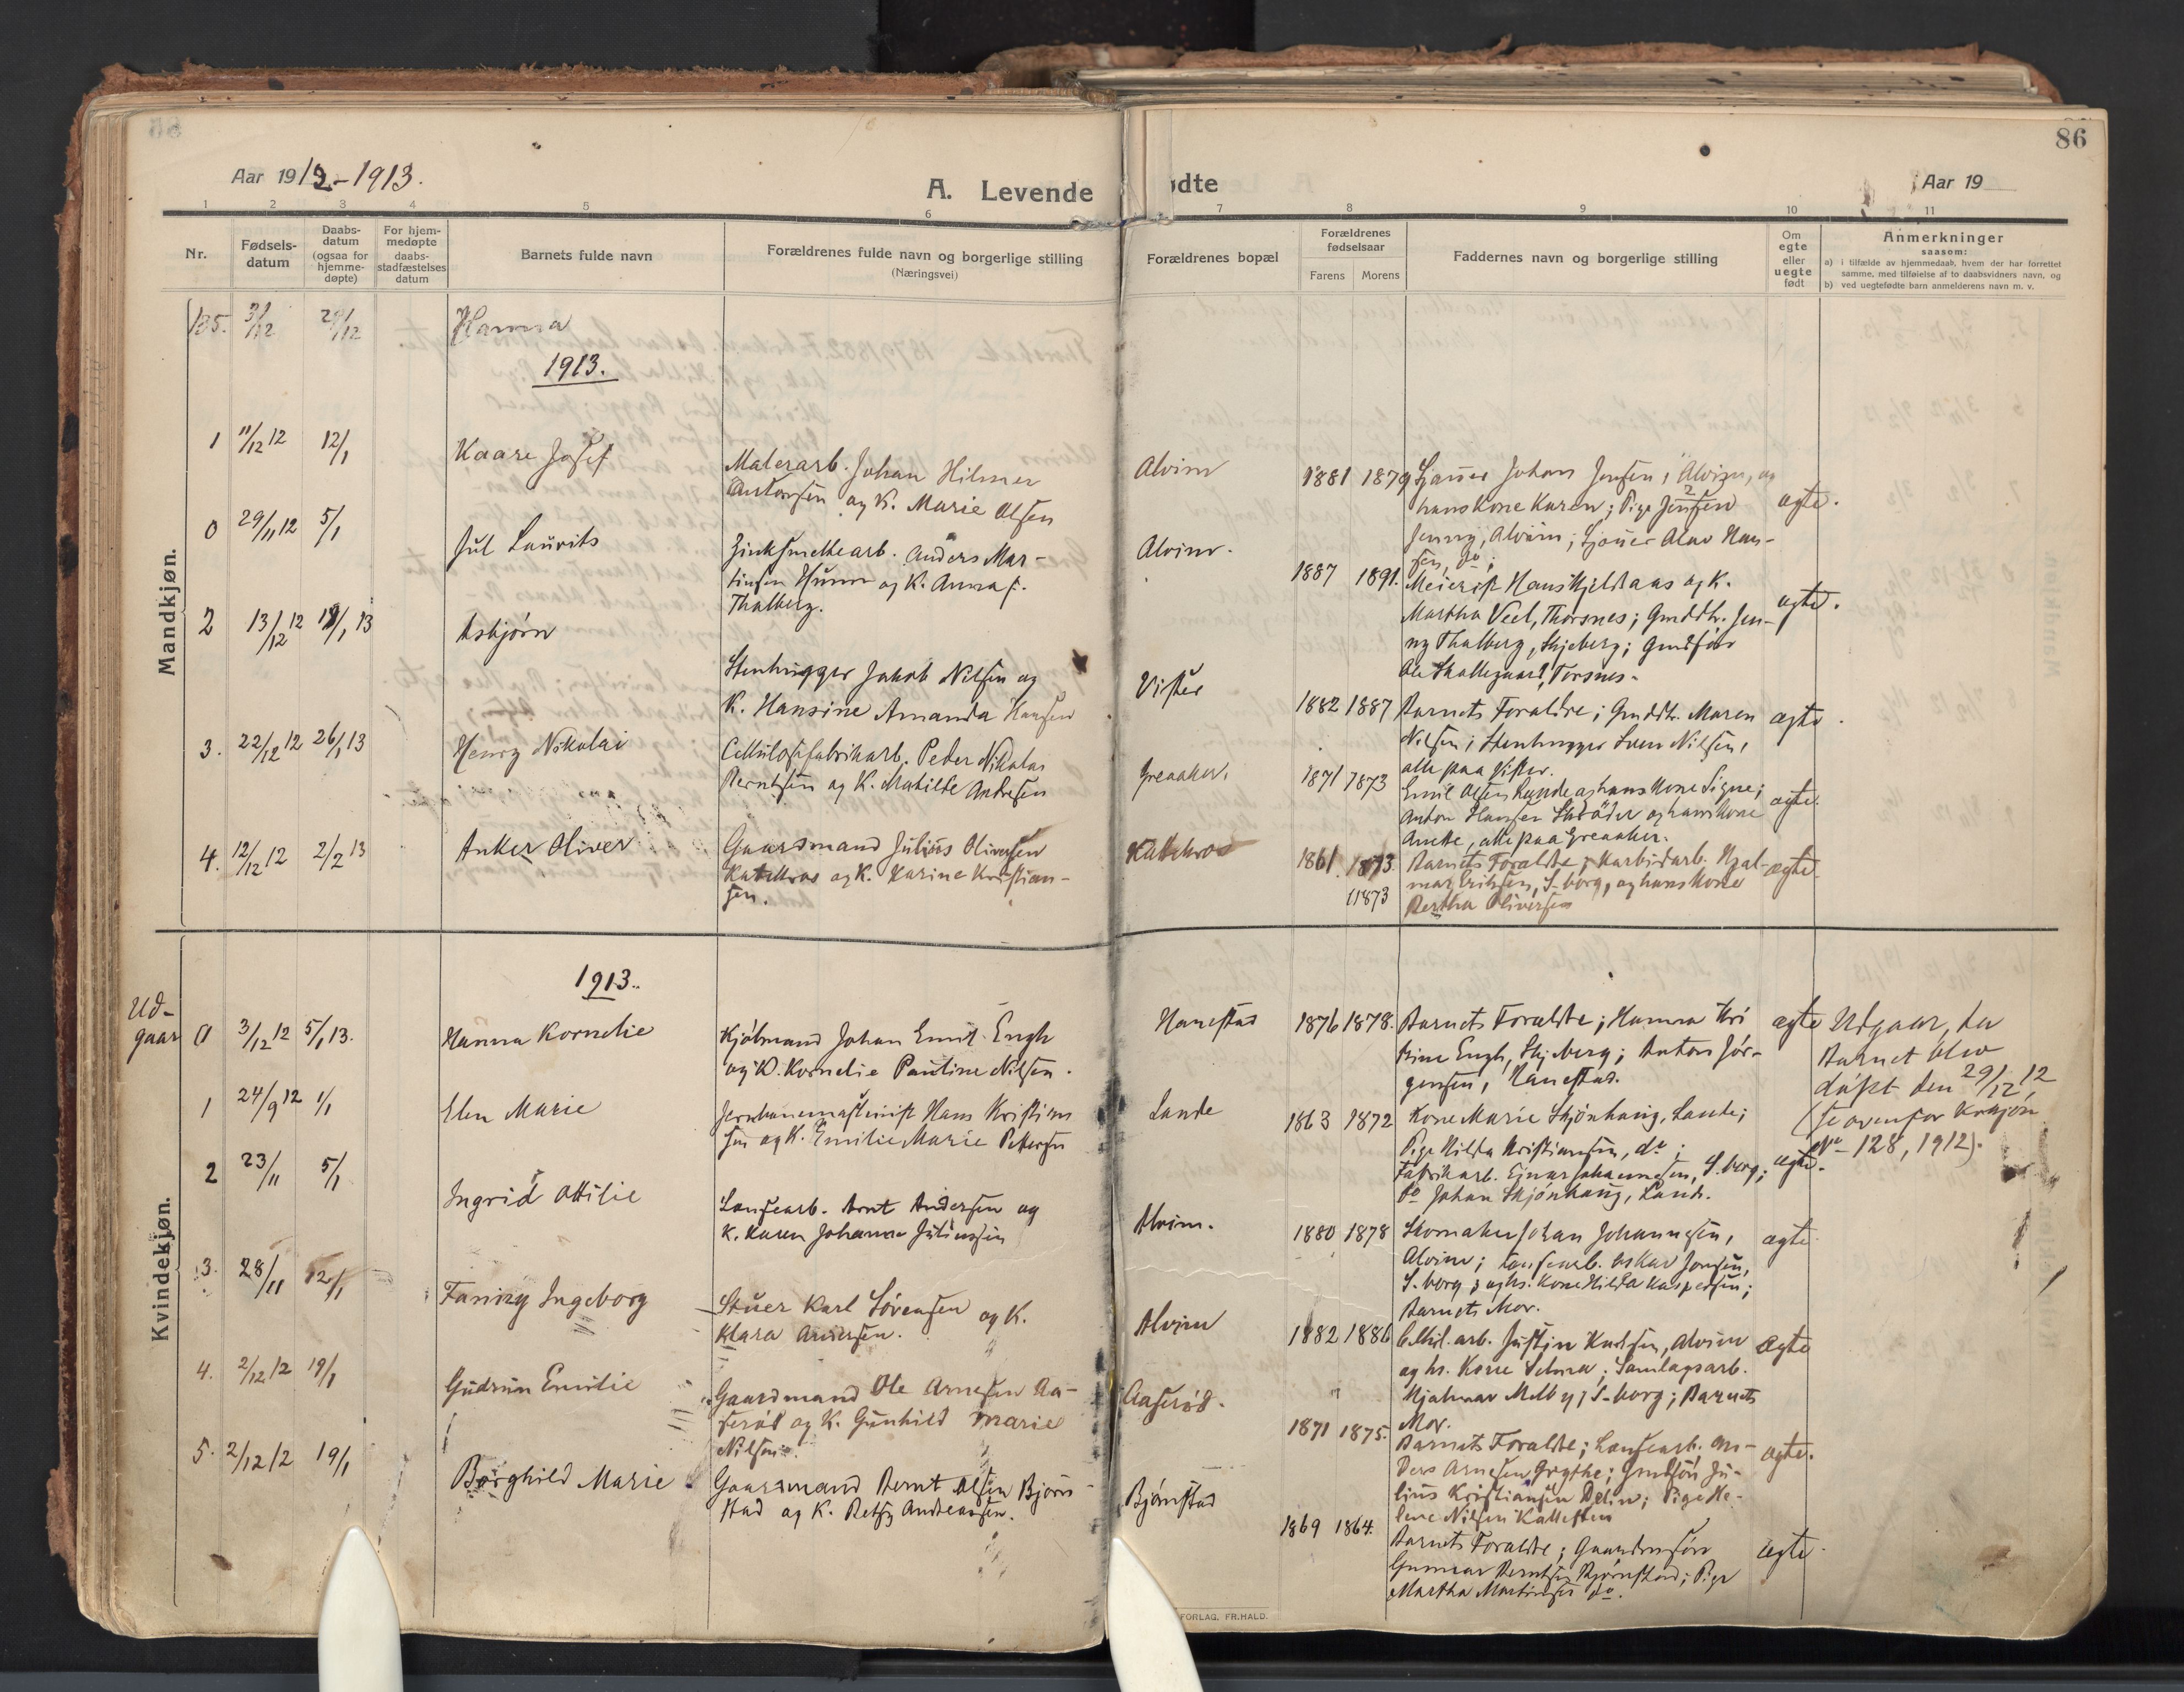 86
Aar 1912-1913.
A. Levende
ødte
Aar 19
1 2 3 4 5 6 7 8 9 10 11
Nr.
Fødsels-
datum
Daabs-
datum
(ogsaa for
hjemme-
døpte)
For hjem-
medøpte
daabs-
stadfæstelses
datum
Barnets fulde navn
Forældrenes fulde navn og borgerlige stilling
(Næringsvei)
Forældrenes bopæl
Forældrenes
fødselsaar
Farens Morens
Faddernes navn og borgerlige stilling
Om
egte
eller
uegte
født
Anmerkninger
saasom:
a) i tilfælde av hjemmedaab, hvem der har forrettet
samme, med tilføielse af to daabsvidners navn, og
b) ved uegtefødte barn anmelderens navn m. v.
Mandkjøn.
135. 3/12 29/12 Hanna
1913.
1 11/12 12 12/1 Kaare Josef
Malerarb. Johan Hilmer
Antonsen og K. Marie Olsen
Alvim
1881 1879
Sjauer Johan Jensen, Alvim, og
hans Kone Karen; Pige Jensen
Jenny, Alvim; Sjauer Olav Han-
sen, do;
egte.
0 29/11 12 5/1 Jul Laurits
Zinksmeltearb. Anders Mar-
tinsen Hunn og K. Anna f.
Thalberg.
Alvim.
1887 1891.
Meierist Hans Kjeldaas og K.
Martha Veel, Thorsnes; Grddtr. Jen-
ny Thalberg, Skjeberg; Grdsøn
Ole Skallegaard, Torsnes.
egte.
2 13/12 12 19/1 13 Asbjørn
Stenhugger Jakob Nilsen og
K. Hansine Amanda Hansen
Vister
1882 1887
Barnets Foraldre; Grddtr. Maren
Nilsen; Stenhugger Sven Nilsen,
alle paa Vister.
egte.
3. 22/12 12 26/1 13 Henry Nikolai
Cellulosefabrikarb. Peder Nikolai
Berntsen og K. Mathilde Andresen
Greaaker.
1871 1873
Emil Olsen Lunde og hans Kone Signe;
Anton Hansen Strøder og hans Kone
Anette, alle paa Greaaker.
egte.
4. 12/12 12 2/2 13 Anker Oliver
Gaardmand Julius Oliversen
Katekros og K. Karine Kristian-
sen.
Katekros
1861. 1873.
1873
Barnets Foraldre; Karbidarb. Hjal-
mar Eriksen, S-borg, og hans Kone
Bertha Oliversen
egte.
Kvindekjøn.
1913.
Ud-
gaar 0 3/12 12 5/1 13. Hanna Kornelie
Kjøbmand Johan Emil Engh
og K. Kornelie Pauline Nilsen.
Hanestad
1876 1878.
Barnets Foraldre; Hanna Kri
stine Engh, Skjeberg; Anton Jør-
gensen, Hanestad.
egte
Udgaar, da
Barnet blev
døpt den 29/12 12
(se ovenfor Kvkjøn
No 128, 1912).
1 24/9 12 1/1 Elen Marie
Jernbanemaskinist Hans Kristian
sen og K. Emilie Marie Pettersen
Lande
1863 1872
Kone Marie Skjønhaug, Lande;
Pige Hilda Kristiansen, do;
Fabrikarb. Einar Johannesen, S. borg;
do Johan Skjønhaug, Lande.
egte.
2 23/11 5/1 Ingrid Otilie
Lansearb. Arnt Andersen og
K. Karen Johanne Juliussen
Alvim.
1880 1878
Skomaker Johan Johannesen,
Alvim; Lansearb. Oskar Jonsen,
S-borg; og hs. Kone Hilda Kaspersen;
Barnets Mor.
egte
3. 28/11 12/1 Fanny Ingeborg
Stuer Karl Sørensen og K.
Klara Andersen.
Alvim
1882 1886
Cellul. arb. Justin Knudsen, Alvim
og hs. Kone Selma; Samlagsarb.
Hjalmar Melby, S-borg; Barnets
Mor.
egte
4. 2/12 12 19/1 Gudrun Emilie
Gaardmand Ole Arnesen Aa-
serød og K. Gunhild Marie
Nilsen.
Aaserød.
1871 1875.
Barnets Foraldre; Lansearb. An-
ders Arnesen Grythe; Grdsøn Ju-
lius Kristiansen Delin; Pige He-
lene Nilsen Kallesten
egte.
5. 2/12 12 19/1 Borghild Marie
Gaardmand Bernt Olsen Bjørn-
stad og K. Betsy Andreassen.
Bjørnstad
1869 1864.
Barnets Foraldre; Gaardmsøn
Gunnar Berntsen Bjørnstad; Pige
Martha Martinsen do.
egte.
FORLAG, FR.HALD.